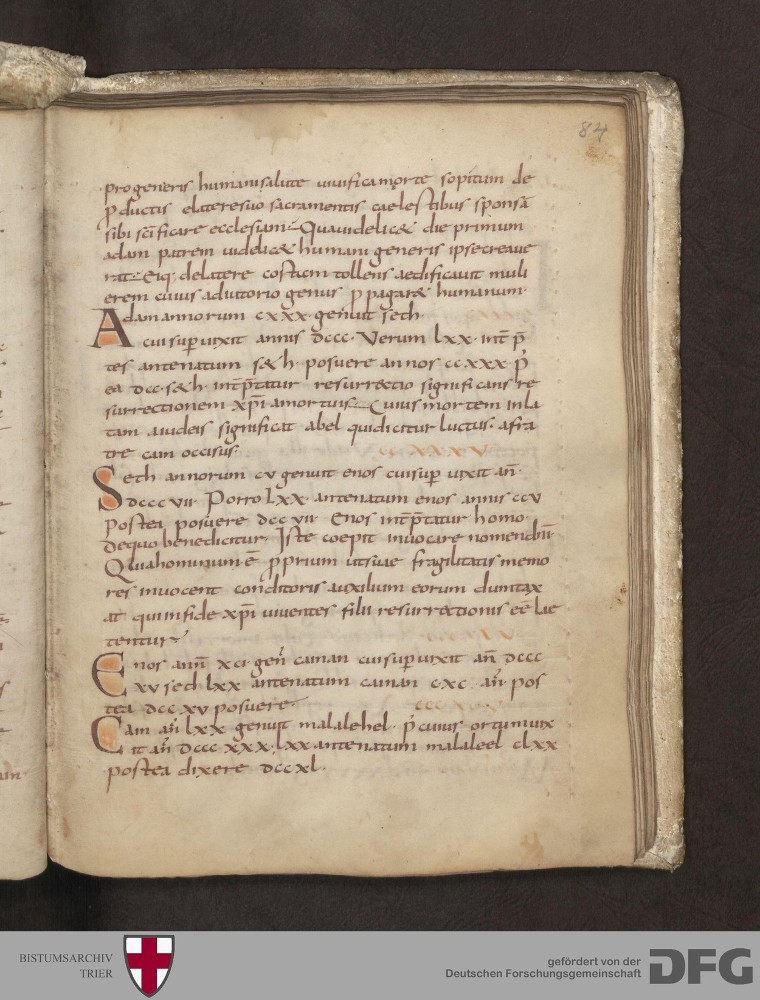 84
progeneris humani salute vivifica morte sopitum de
p̄ductis elateresuo sacramentis caelestibus sponsā
sibi sc̄ificare ecclesiam. Qua videlic& die primum
adam patrem videlic& humani generis ipse creave
rat. Eiq; de latere costam tollens aedificavit muli
erem cuius adiutorio genus p̄pagar& humanum.
Adam annorum cxxx. genuit seth.
cui sup̄vixit annis dccc. Verum lxx. int̄p̄
tes ante natum s&h. posuere annos ccxxx. p̄
ea dcc. s&h. int̄p̄tatur resurrectio significans re
surrectionem xp̄i amortuis. Cuius mortem inla
tam aiudeis significat abel qui dicitur luctus. afra
tre cain occisus.
Seth annorum cv genuit enos cui sup̄ vixit an̄.
dcccvii. Porro lxx. ante natum enos annis ccv
postea posuere dccvii. Enos int̄p̄tatur homo.
De quo bene dicitur. Iste coepit invocare nomen dn̄i
Quia hominum ē p̄prium ut suae fragilitatis memo
res invocent conditoris auxilium eorum dumtax
at qui in fide xp̄i viventes filii resurrectionis eē lae
tentur
Enos ann̄ xc. gen̄ cainan cui sup̄vixit an̄ dccc
xv sed lxx ante natum cainan cxc. an̄. pos
tea dccxv posuere
Cain an̄ lxx genuit malalehel. p̄ cuius ortum vix
it an̄ dcccxxx. lxx ante natum malaleel clxx
postea dixere dccxl.
BISTUMSARCHIV
TRIER
gefördert von der
Deutschen Forschungsgemeinschaft
DFG